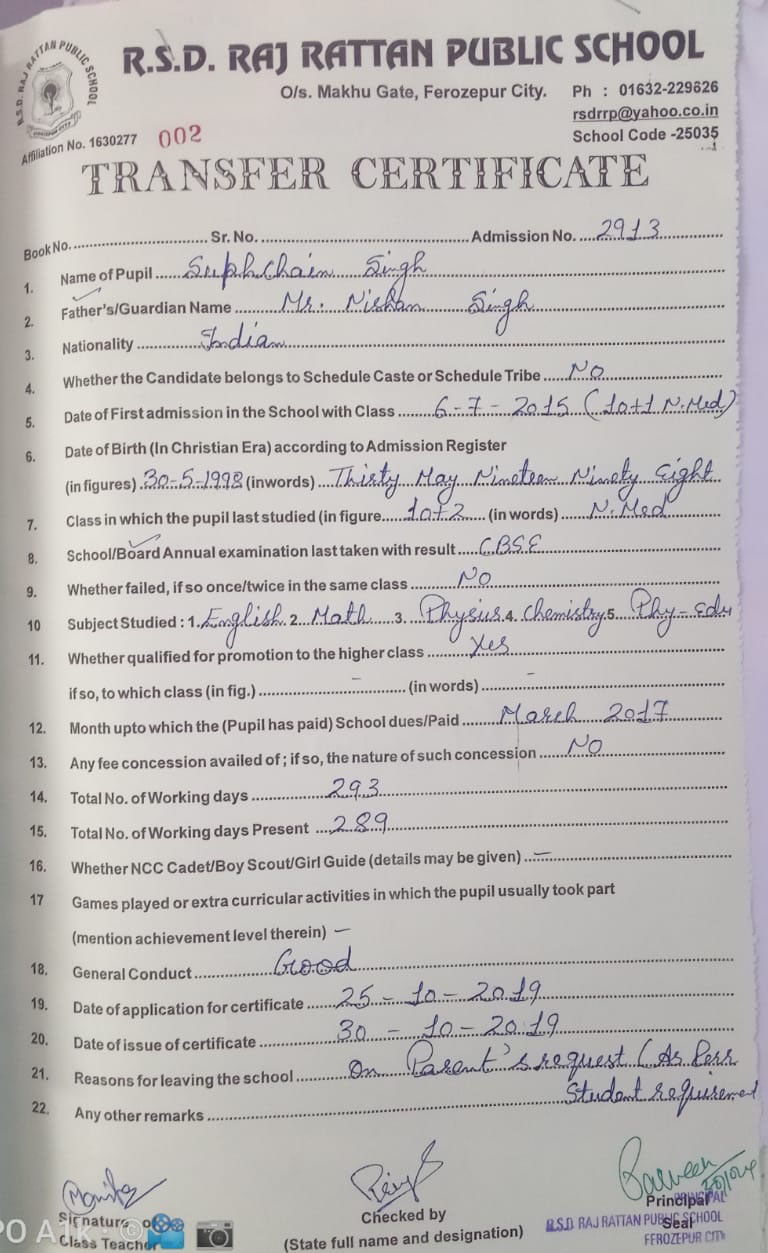 R.S.D. RAJ RATTAN PUBLIC SCHOOL
R.S.D. RAJ RATTAN PUBLIC SCHOOL
O/s. Makhu Gate, Ferozepur City. Ph : 01632-229626
rsdrrp@yahoo.co.in
Affiliation No. 1630277 002 School Code -25035
TRANSFER CERTIFICATE
Book No. Sr. No. Admission No. 2913
1. Name of Pupil Sukhchain Singh
2. Father's/Guardian Name Mr. Nishan Singh
3. Nationality Indian
4. Whether the Candidate belongs to Schedule Caste or Schedule Tribe NO
5. Date of First admission in the School with Class 6-7-2015 (10+1 N.Med)
6. Date of Birth (In Christian Era) according to Admission Register
(in figures) 30-5-1998 (inwords) Thirty May Nineteen Ninety Eight
7. Class in which the pupil last studied (in figure 10+2 (in words) N.Med
8. School/Board Annual examination last taken with result CBSE
9. Whether failed, if so once/twice in the same class NO
10 Subject Studied : 1. English 2. Math 3. Physics 4. Chemistry 5. Phy-Edu
11. Whether qualified for promotion to the higher class Yes
if so, to which class (in fig.) - (in words) -
12. Month upto which the (Pupil has paid) School dues/Paid March 2017
13. Any fee concession availed of ; if so, the nature of such concession NO
14. Total No. of Working days 293
15. Total No. of Working days Present 289
16. Whether NCC Cadet/Boy Scout/Girl Guide (details may be given) —
17 Games played or extra curricular activities in which the pupil usually took part
(mention achievement level therein) —
18. General Conduct Good
19. Date of application for certificate 25-10-2019
20. Date of issue of certificate 30-10-2019
21. Reasons for leaving the school On Parent's request (As Perr
Student requirement
22. Any other remarks
Signature of
Class Teacher
Checked by
(State full name and designation)
Principal
Seal
PRINCIPAL
R.S.D. RAJ RATTAN PUBLIC SCHOOL
FEROZEPUR CITY